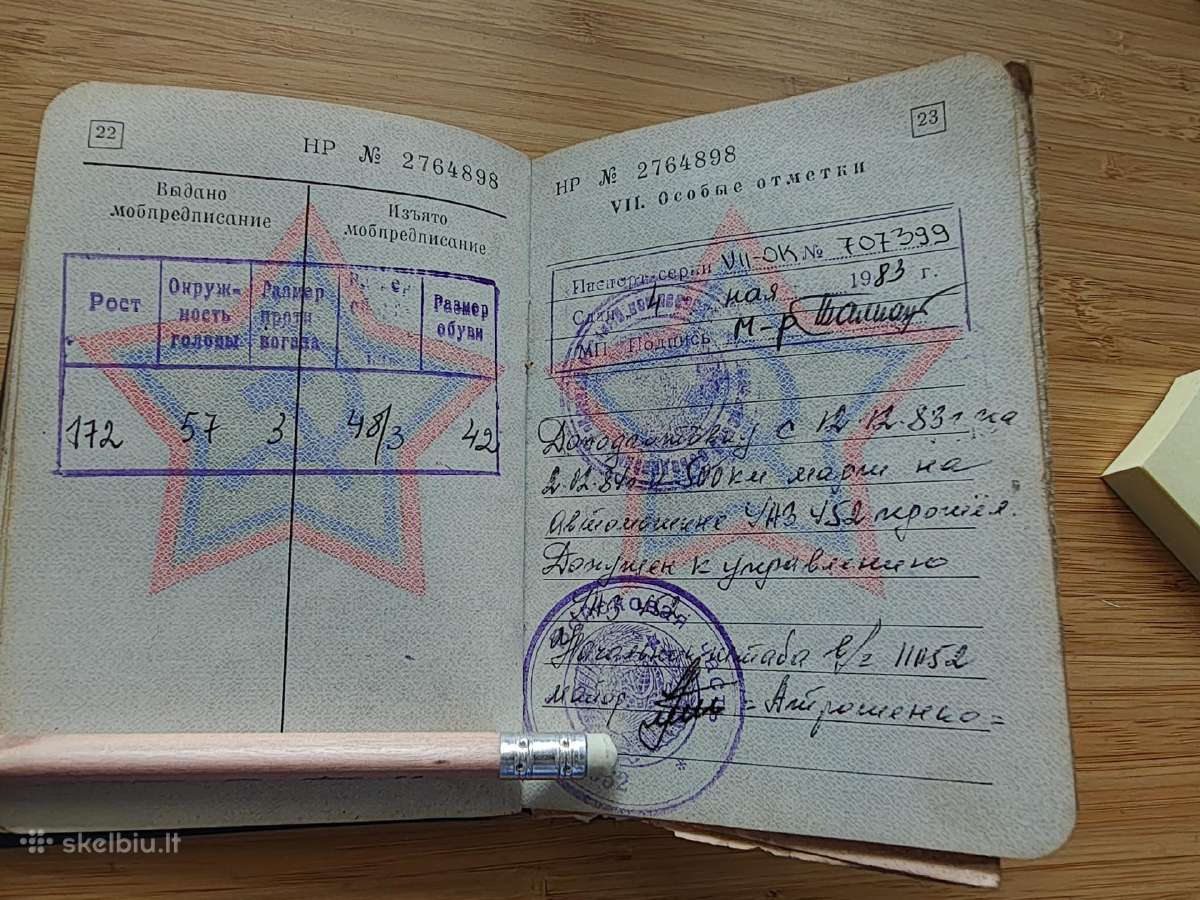 22
НР № 2764898
Выдано мобпредписание
Изъято мобпредписание
Рост
Окруж-ность головы
Размер проти вогаза
Размер обуви
172 57 3 48/3 42
23
НР № 2764898
VII. Особые отметки
Паспорт серии VII-ОК № 707399
Сдан 4 мая 1983 г.
МП. Подпись м-р
с 12.12.83г по
500 км марш на
автомашине УАЗ 452 прошёл.
Допущен к управлению
УАЗ 452
Начальник штаба в/ч 11052
майор = Атрошенко =
skelbiu.lt